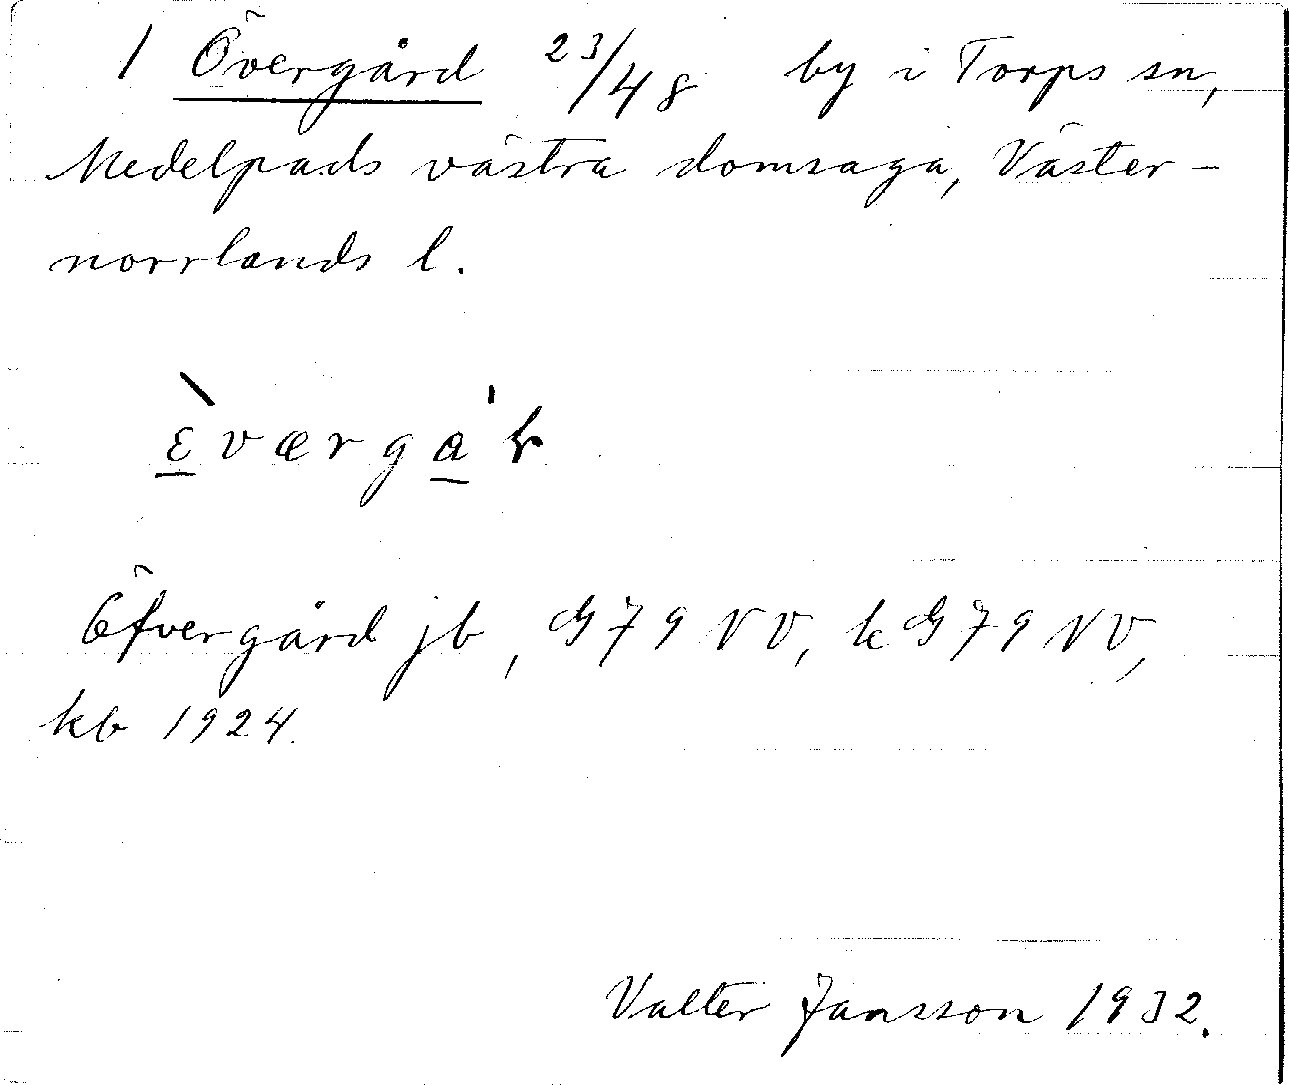 1 Övergård 23/48 by i Torps sn,
Medelpads västra domsaga, Väster-
norrlands l.
Öfvergård jb, G79NV, kG79NV,
kb 1924.
Valter Jansson 1932.